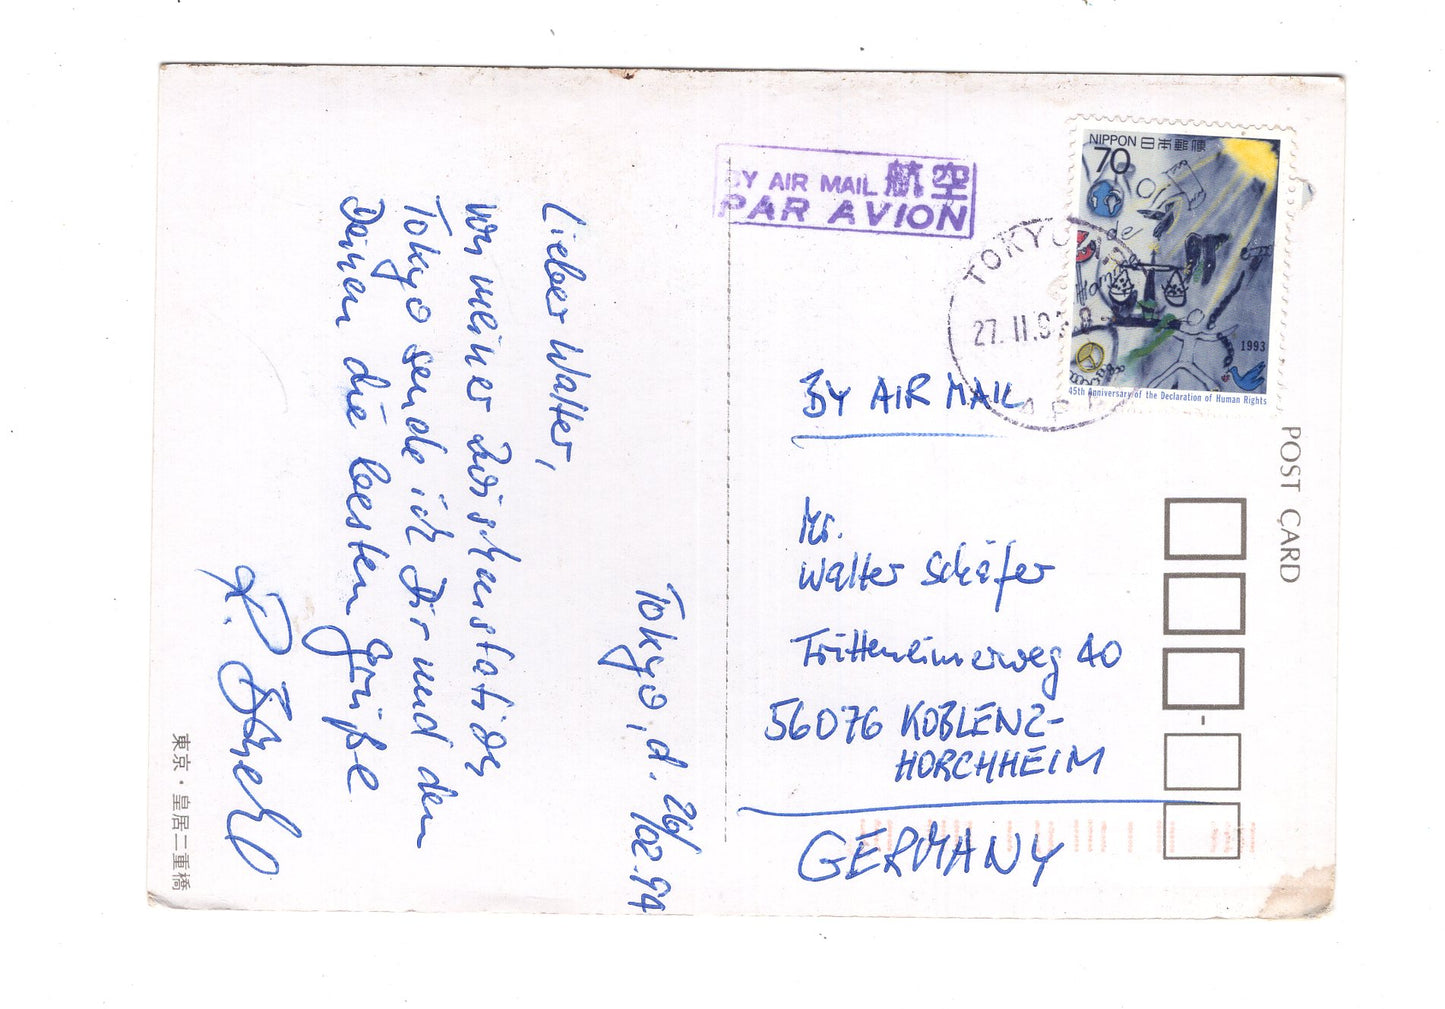 Tokyo, d. 26/02.94
Lieber Walter,
von meiner Zwischenstation
Tokyo sende ich Dir und den
Deinen die besten Grüße
BY AIR MAIL 航空
PAR AVION
NIPPON 日本郵便
70
de
1993
45th Anniversary of the Declaration of Human Rights
TOKYO
27. II. 94
BY AIR MAIL
Mr.
Walter Schäfer
Trittenheimerweg 40
56076 KOBLENZ-
HORCHHEIM
GERMANY
POST CARD
東京・皇居二重橋